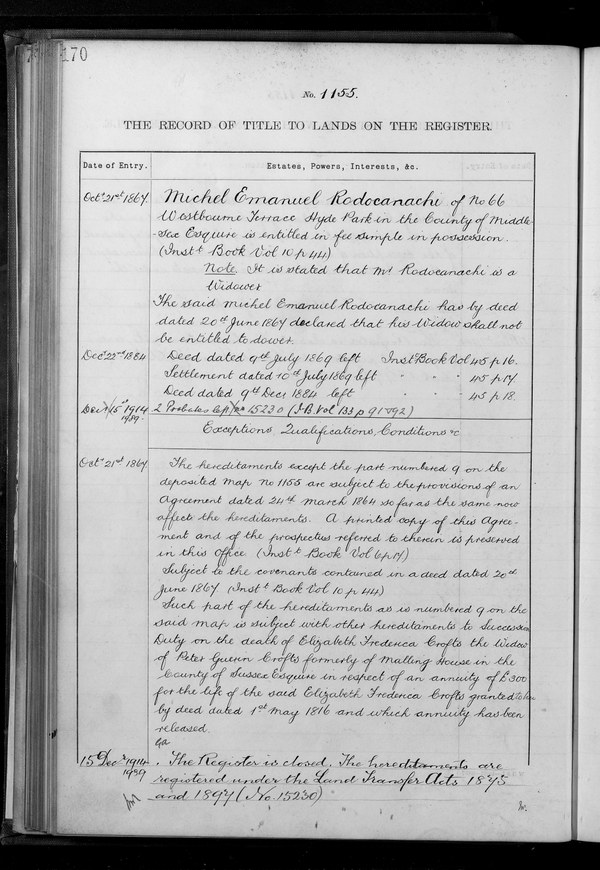 170
No. 1155.
THE RECORD OF TITLE TO LANDS ON THE REGISTER.
Date of Entry. Estates, Powers, Interests, &c.
Octr 21st 1867. Michel Emanuel Rodocanachi of No 66
Westbourne Terrace Hyde Park in the County of Middle-
-sex Esquire is entitled in fee simple in possession.
(Instt Book Vol 10 p 44)
Note. It is stated that Mr Rodocanachi is a
Widower
The said Michel Emanuel Rodocanachi has by deed
dated 20th June 1867 declared that his Widow shall not
be entitled to dower.
Decr 22nd 1884 Deed dated 9th July 1869 left Inst Book Vol 45 p 16.
Settlement dated 10th July 1869 left " " " 45 p 17.
Deed dated 9th Decr 1884 left " " " 45 p 18.
Decr 15th 1914 2 Probates left 15230 (I.B. Vol 133 p 91 & 92)
1989.
Exceptions, Qualifications, Conditions &c
Octr 21st 1867 The hereditaments except the part numbered 9 on the
deposited Map No 1155 are subject to the provisions of an
Agreement dated 24th March 1864 so far as the same now
affects the hereditaments. A printed copy of this Agree-
ment and of the prospectus referred to therein is preserved
in this Office (Instt Book Vol 6 p 17)
Subject to the covenants contained in a deed dated 20th
June 1867 (Instt Book Vol 10 p 44)
Such part of the hereditaments as is numbered 9 on the
said Map is subject with other hereditaments to Succession
Duty on the death of Elizabeth Frederica Crofts the Widow
of Peter Guerin Crofts formerly of Malling House in the
County of Sussex Esquire in respect of an annuity of £300
for the life of the said Elizabeth Frederica Crofts granted to her
by deed dated 1st May 1816 and which annuity has been
released.
15 Decr 1914 The Register is closed. The hereditaments are
1989
registered under the Land Transfer Acts 1875
and 1897 (No. 15230)